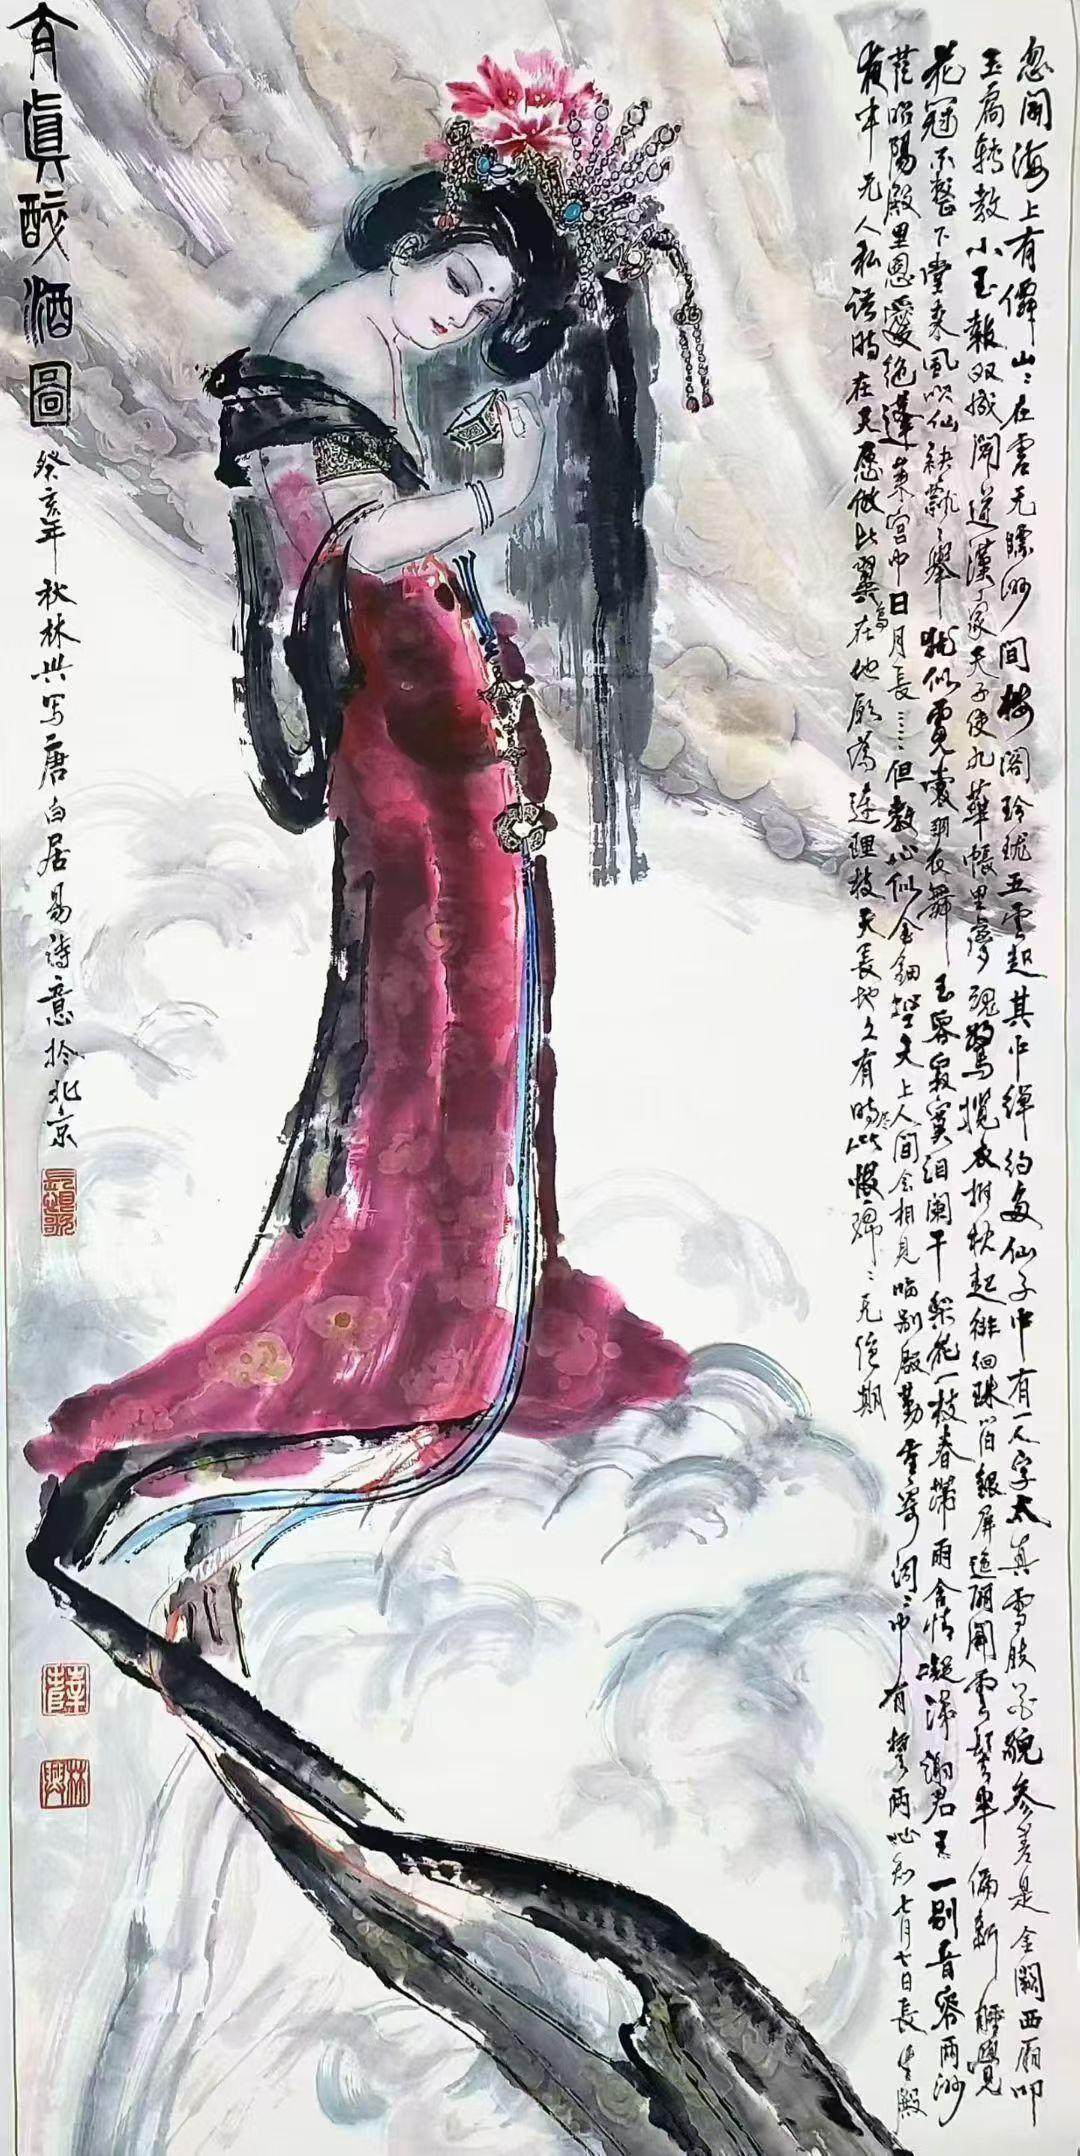 忽闻海上有僊山〻在虚无瞟渺间楼阁玲珑五雲起其中绰约多仙子中有一人字太真雪肤花貌参差是金阙西厢叩
玉扃转教小玉報双成闻道漢家天子使九華帳里夢魂驚揽衣推枕起徘徊珠箔银屏迤逦開雲髻半偏新睡覺
花冠不整下堂来風吹仙袂飘〻舉犹似霓裳羽衣舞玉容寂寞泪阑干梨花一枝春带雨含情凝涕谢君王一别音容两渺
茫昭陽殿里恩愛绝蓬莱宫中日月長……但教心似金钿坚天上人间会相見临别殷勤重寄词〻中有誓两心知七月七日長生殿
夜半无人私语時在天愿做比翼鸟在地愿為连理枝天長地久有時尽此恨绵〻无绝期
太真醉酒圖
癸亥年秋林兴写唐白居易诗意於北京
長恨歌
林興